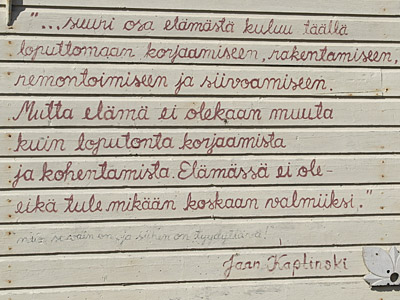 "...suuri osa elämästä kuluu täällä
loputtomaan korjaamiseen, rakentamiseen,
remontoimiseen ja siivoamiseen.
Mutta elämä ei olekaan muuta
kuin loputonta korjaamista
ja kohentamista. Elämässä ei ole-
eikä tule mikään koskaan valmiiksi."
niin se vain on, ja siihen on tyydyttävä!
Jaan Kaplinski